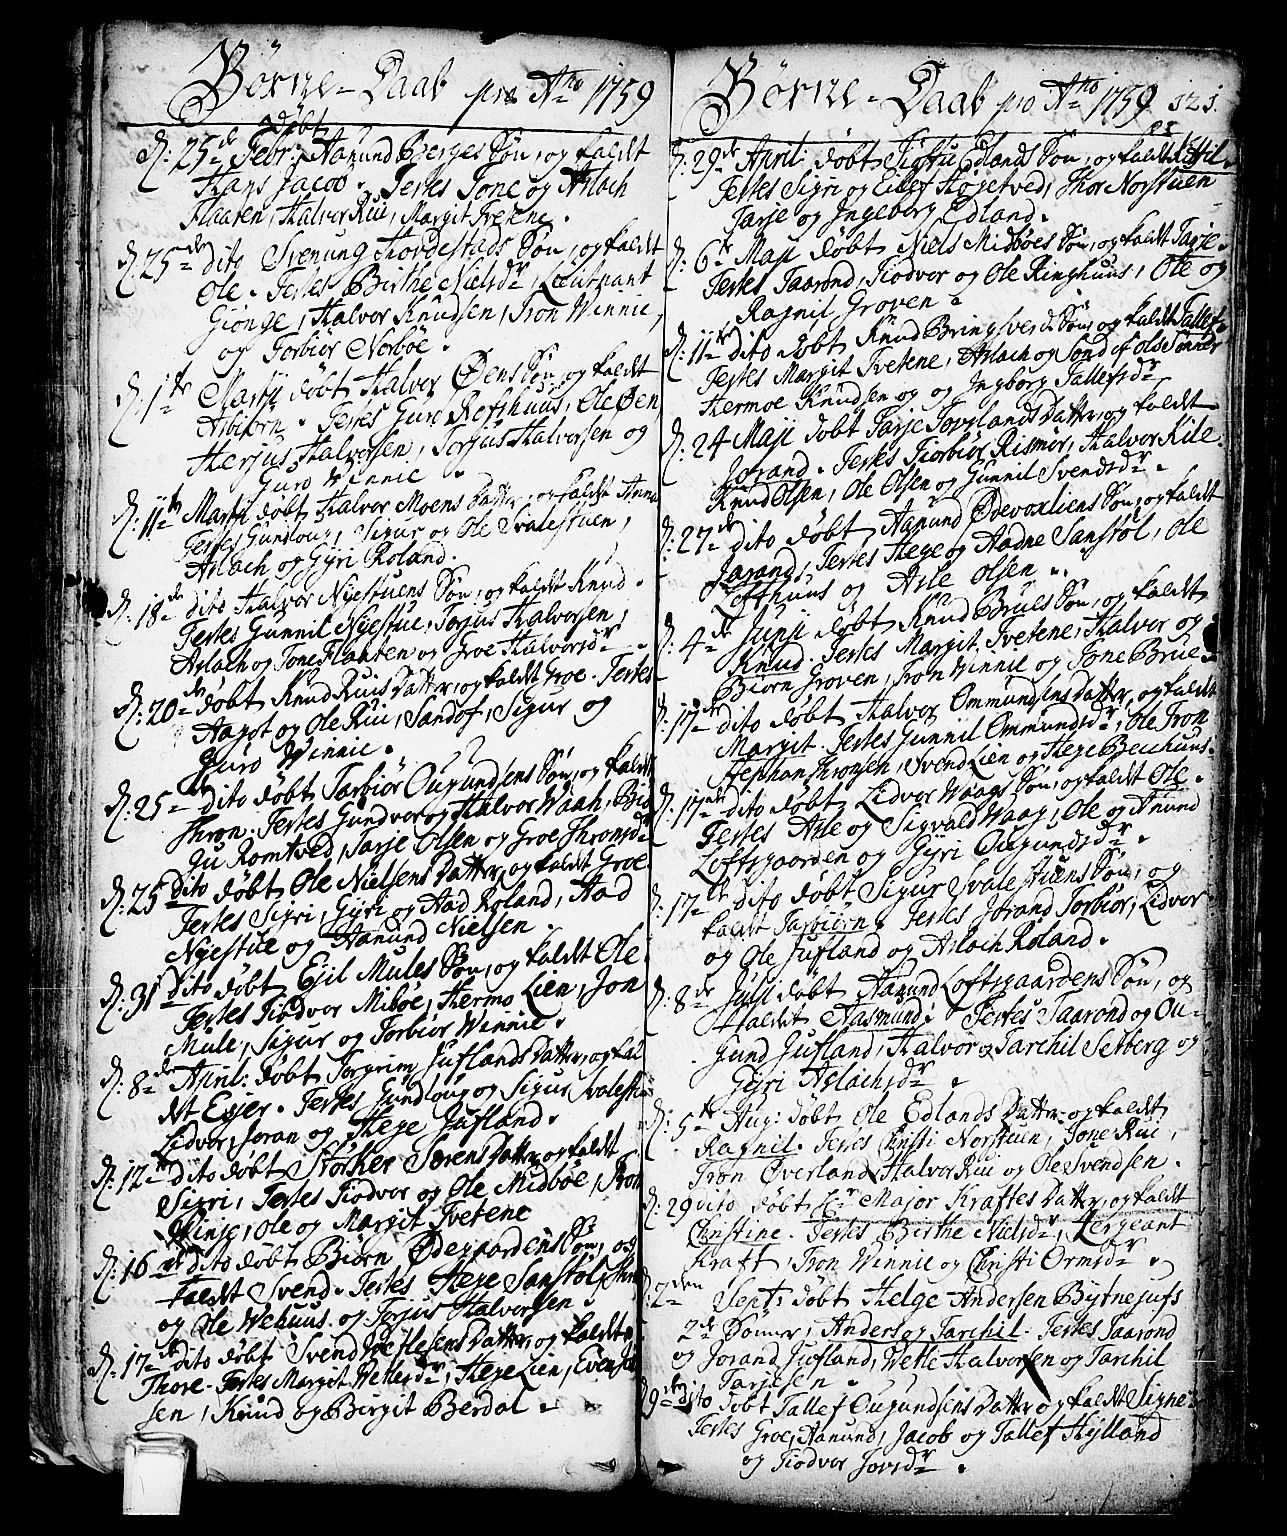 Børne-Daab pro Aho 1759
D: 25de Febr: Døbt Aanund Berges Søn, og kaldt
Hans Jacob. Testes Tone og Aslach
Flaaten, Halvor Rui, Margit Tvetene.
D: 25de dito Svenung Hordestads Søn, og kaldt
Ole. Testes Birthe Nielsdr, Lieutnant
Giønge, Halvor Knudsen, Tron Winnie,
og Torbiør Norbøe.
D: 1te Martij døbt Halvor Øens Søn, og kaldt
Asbiørn. Testes Guro Refshuus, Ole Øen
Herjus Halvorsen, Torjus Halvorsen og
Guro Winnie.
D: 11te Martij døbt Halvor Moens Datter, og kaldt Anne
Testes Gundloug, Sigur og Ole Svalestuen,
Aslach og Gyri Roland.
D: 18de dito Halvor Nyestuens Søn, og kaldt Knud.
Testes Gunnil Nyestue, Torjus Halvorsen,
Aslach og Tone Flaaten og Groe Halvorsdr
D: 20de døbt Knud Ruis Datter, og kaldt Groe. Testes
Aagot og Ole Rui, Sandof, Sigur og
Guro Winnie.
D: 25de dito døbt Tarbiør Ougundsens Søn, og kaldt
Thron. Testes Gundvor og Halvor Waah, Bir
gu Romtved, Tarje Olsen og Groe Thronsdr
D: 25 dito døbt Ole Nielsens Datter, og kaldt Groe
Testes Sigri, Gyri og Aad Roland, Aad
Nyestue og Aanund Nielsen.
D: 31te dito døbt Ejil Mules Søn, og kaldt Ole.
Testes Tiodvor Mibøe, Hermo Lien, Jon
Mule, Sigur og Torbiør Winnie.
D: 8de April: døbt Torgrim Juflands Datter, og kal
dt Egier. Testes Gundloug og Sigur Svalestu
Lidvor, Joran og Hege Jufland.
D: 12te dito døbt Størker Sørens Datter, og kaldt
Sigri, Testes Tiodvor og Ole Midbøe, Tron
Winie, Ole og Margit Tvetene
D: 16de dito døbt Biørn Ødegaardens Søn, og
kaldt Svend. Testes Hege Sanstøl,
og Ole Wehuus og Torjus Halvorsen.
D: 17de dito døbt Svend Wetlesens Datter, og kaldt
Thore. Testes Margit Wetlesdr, Hege Lien, Even
sen, Knud og Birgit Berdal.
Børne-Daab pro Aho 1759. 521.
D: 29de April døbt Edlands Søn, og kaldt Kittil.
Testes Sigri og Eilef Høgetved, Thor Norstuen
Tarje og Ingeborg Edland.
D: 6te Maji døbt Niels Midbøes Søn, og kaldt Tarje.
Testes Taarond, Tiodvor og Ole Ringhuus, Ole og
Ragnil Groven.
D: 11te dito døbt Knud Bringsverds Søn, og kaldt Tallef.
Testes Margit Tvetene, Aslach og Sondof Ols Sønner
Hermoe Knudsen og og Ingborg Tallefsdr
D: 24 Maji døbt Tarje Torglands Datter, og kaldt
Jorand. Testes Tiorbiør Rismor, Halvor Kile.
Knud Olsen, Ole Olsen og Gunnil Svendsdr.
D: 27de dito døbt Aanund Ødevoxliens Søn, og kaldt
Jarand, Testes Hege og Aadne Sanstøl, Ole
Lofthuus og Asle Olsen.
D: 4de Junji døbt Knud Brues Søn, og kaldt
Knud. Testes Margit Tvetene, Halvor og
Biørn Groven, Tron Winnie og Tone Brue.
D: 17de dito døbt Halvor Ommundsens Datter, og kaldt
Margit. Testes Gunnil Ommundsdr, Ole Tron
Stephan Thronsen, Svend Lien og Hege Beichuus.
D: 17de dito døbt Lidvor Waags Søn, og kaldt Ole.
Testes Asle og Sigvald Waag, Ole og Anund
Loftsgaarden og Gyri Ougundsdr.
D: 17de dito døbt Sigur Svalestuens Søn, og
kaldt Tarbiørn. Testes Jorand, Torbiør, Lidvor
og Ole Jufland og Aslach Roland.
D: 8de Juli døbt Aanund Loftsgaardens Søn, og
kaldet Aasmund. Testes Taarond og Ou-
gund Jufland, Halvor og Tarchil Setberg og
Gyri Aslachsdr.
D: 5te Aug: døbt Ole Edlands Datter, og kaldt
Ragnil. Testes Christi Norstuen, Tone Rui,
Tron Øverland, Halvor Rui og Ole Svendsen.
D: 29 dito døbt Hr Major Kraftes Datter, og kaldt
Christine. Testes Birthe Nielsdr, Sergeant
Kraft, Tron Winnie og Christi Ormsdr.
D: 2den Sept: døbt Helge Andersen Byrtnejufs
2de Sønner, Anders og Tarchil. Testes Taarond
og Jorand Jufland, Wetle Halvorsen og Tarchil
Tarjesen.
D: 9de dito døbt Tallef Ougundsens Datter, og kaldt Signe.
Testes Groe, Aanund, Jacob og Tallef Hylland
og Tiodvor Jorsdr.